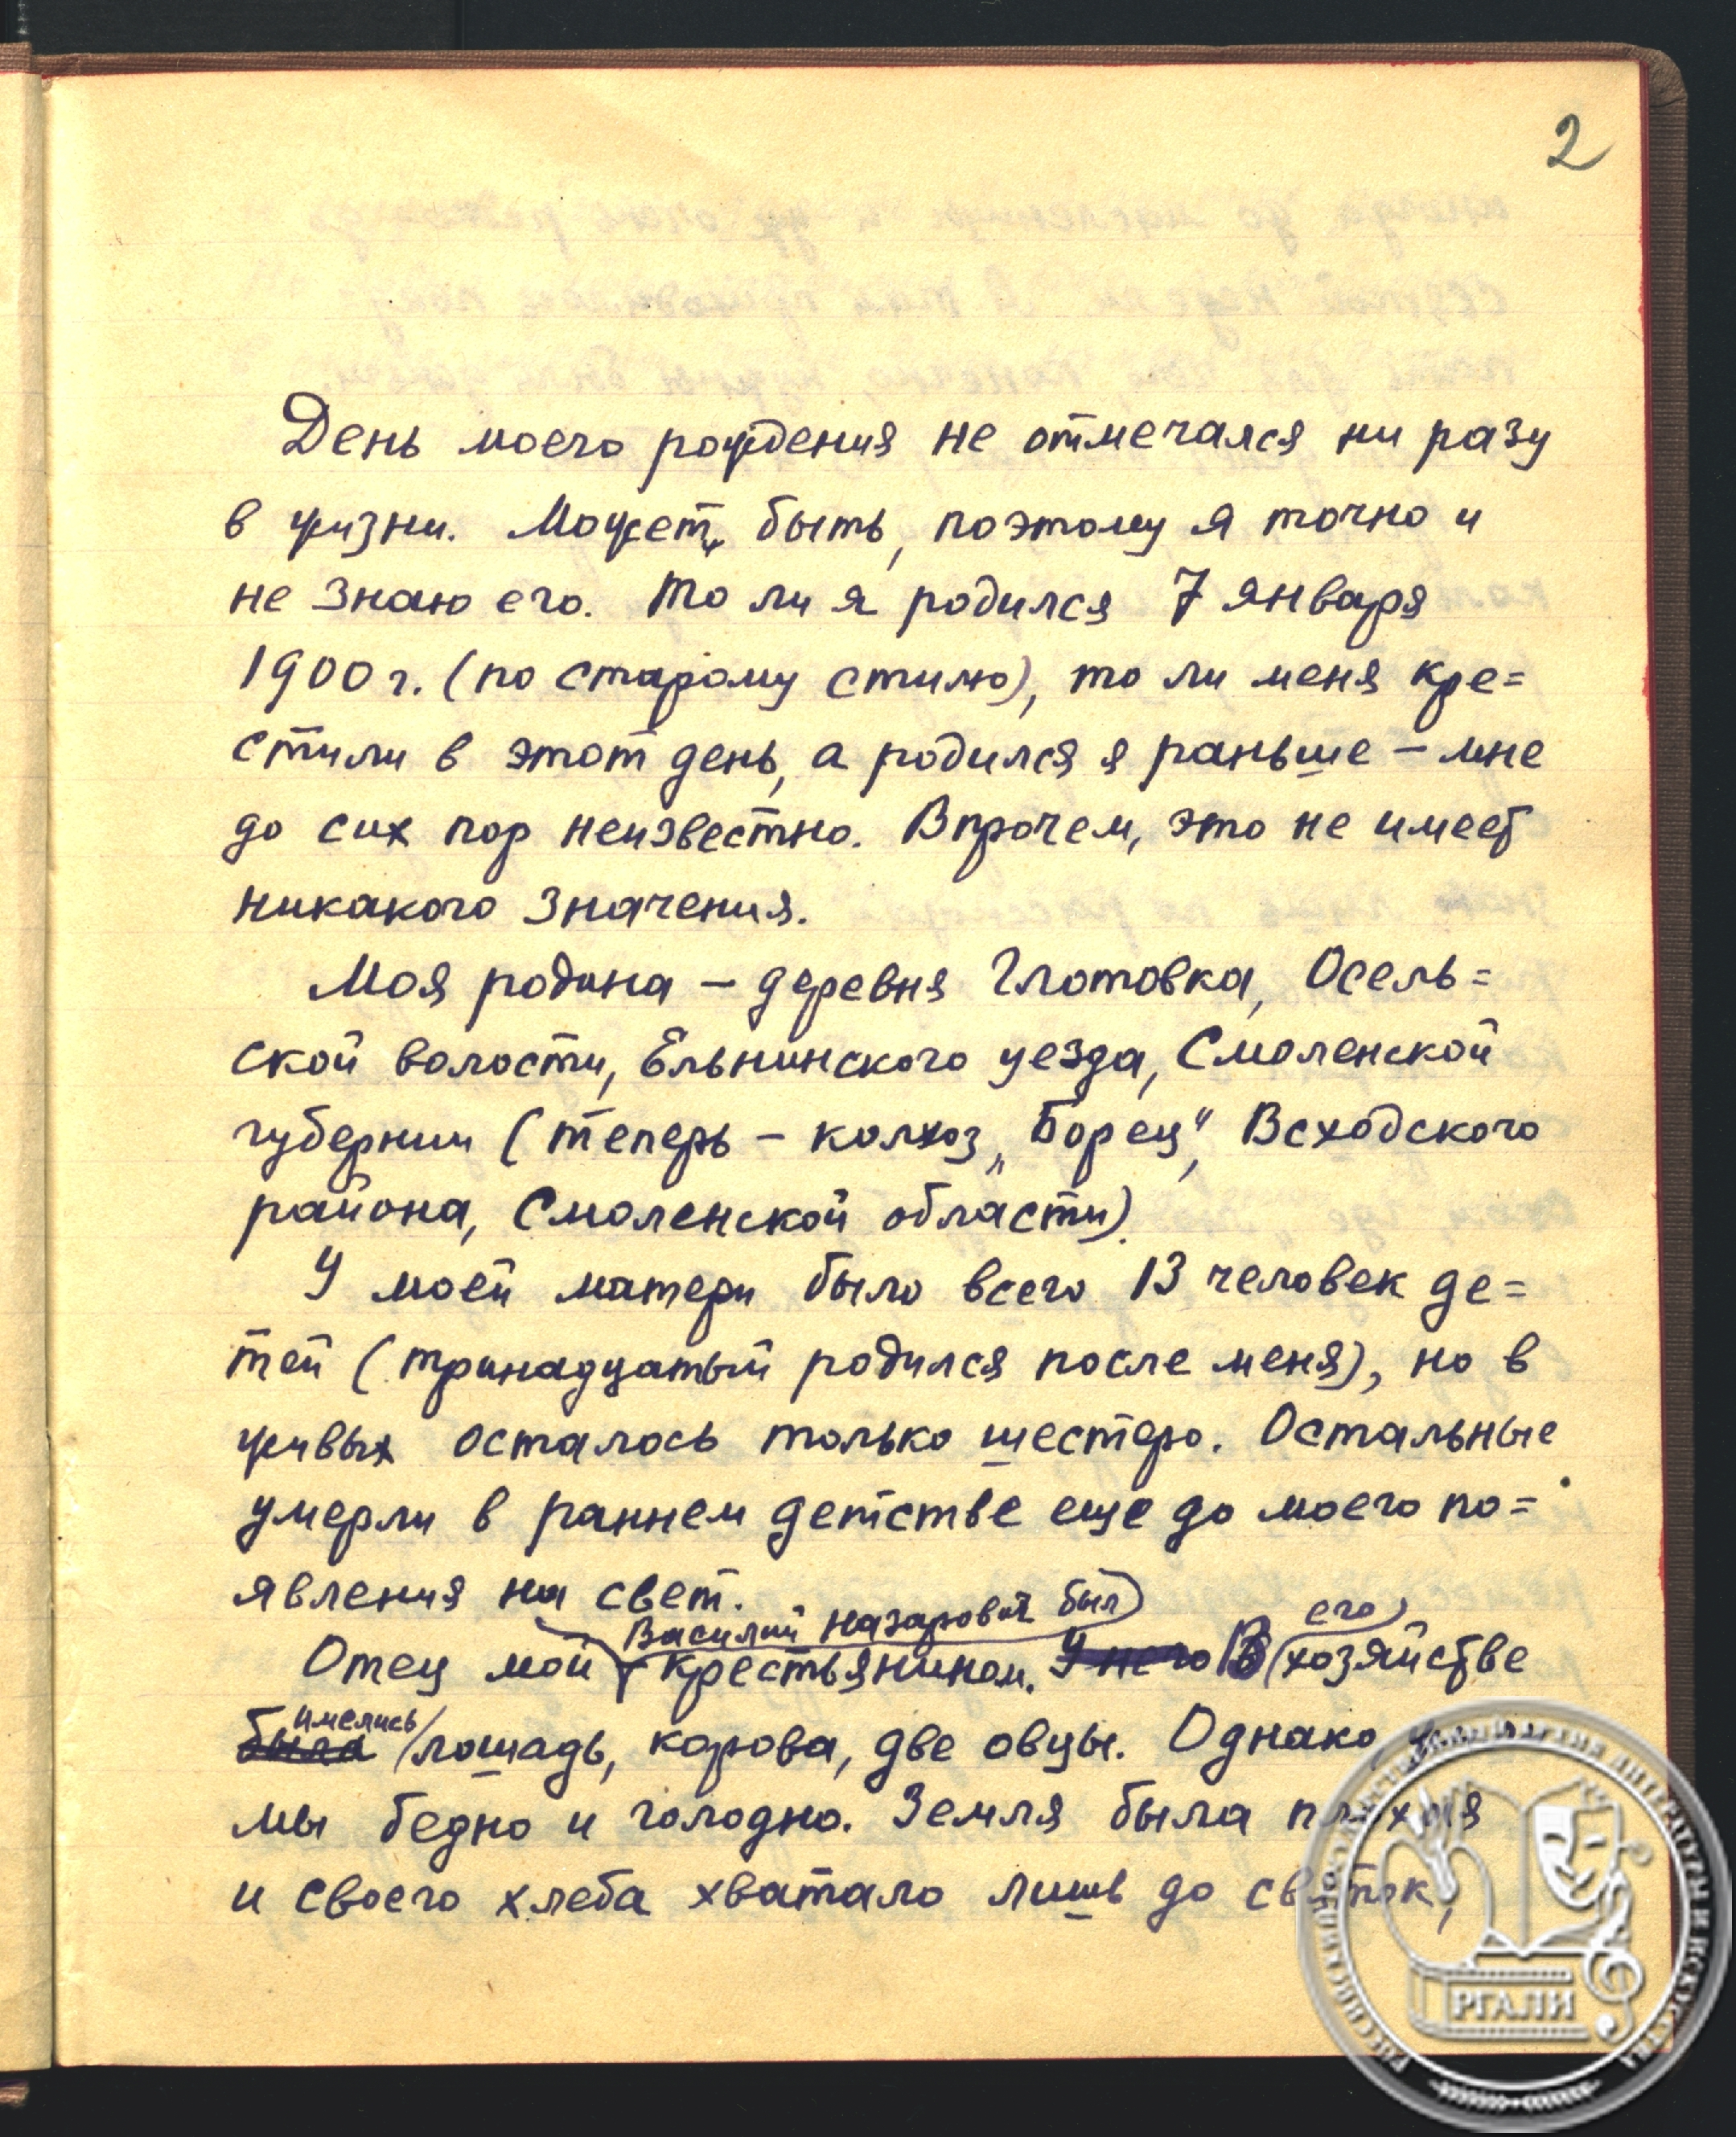 2
День моего рождения не отмечался ни разу
в жизни. Может, быть, поэтому я точно и
не знаю его. То ли я родился 7 января
1900 г. (по старому стилю), то ли меня кре=
стили в этот день, а родился я раньше – мне
до сих пор неизвестно. Впрочем, это не имеет
никакого значения.
Моя родина – деревня Глотовка, Осель=
ской волости, Ельнинского уезда, Смоленской
губернии (теперь – колхоз „Борец", Всходского
района, Смоленской области).
У моей матери было всего 13 человек де=
тей (тринадцатый родился после меня), но в
живых осталось только шестеро. Остальные
умерли в раннем детстве еще до моего по=
явления на свет.
Василий Назарович был его
Отец мой – крестьянином. У него В хозяйстве
имелись
была лошадь, корова, две овцы. Однако
мы бедно и голодно. Земля была плохая
и своего хлеба хватало лишь до святок,
РГАЛИ